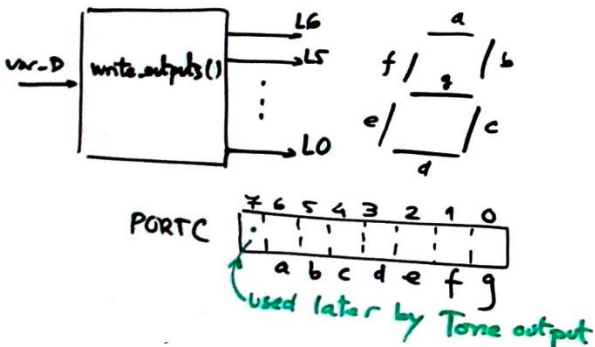 L6
var_D write_outputs() L5
L0
a
f b
g
e c
d
7 6 5 4 3 2 1 0
PORTC
a b c d e f g
used later by Tone output